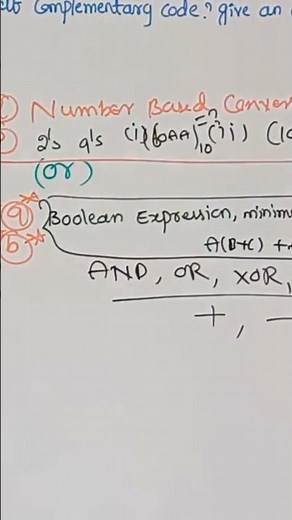 Complementary code? give an
Number Based Conver
2's 9's (i) (6AA)10 =? (ii) (10
(or)
a Boolean Expression, minim
b A(B+C) +
AND, OR, XOR,
+, -